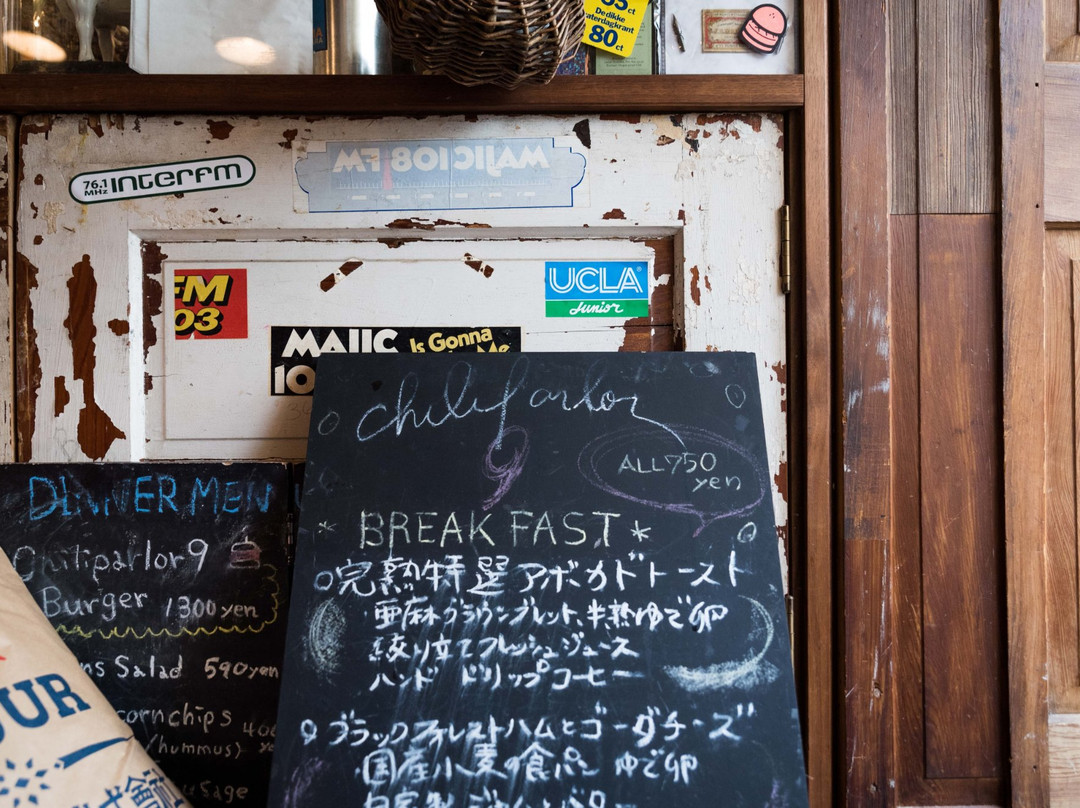 65ct
De dikke
zaterdagkrant
80ct
76.1
MHz
INTERFM
MAJIC108 FM
FM
03
UCLA
Junior
MAJIC
Is Gonna
10
chiliparlor
9
ALL750
yen
* BREAKFAST *
○完熟特選アボカドトースト
・亜麻ブラウンブレット、半熟ゆで卵
絞り立てフレッシュジュース
ハンドドリップコーヒー
○ブラックフォレストハムとゴーダチーズ
・国産小麦の食パン ゆで卵
DINNER MENU
Chiliparlor9
Burger 1300yen
Salad 590yen
cornchips
(hummus)
OUR